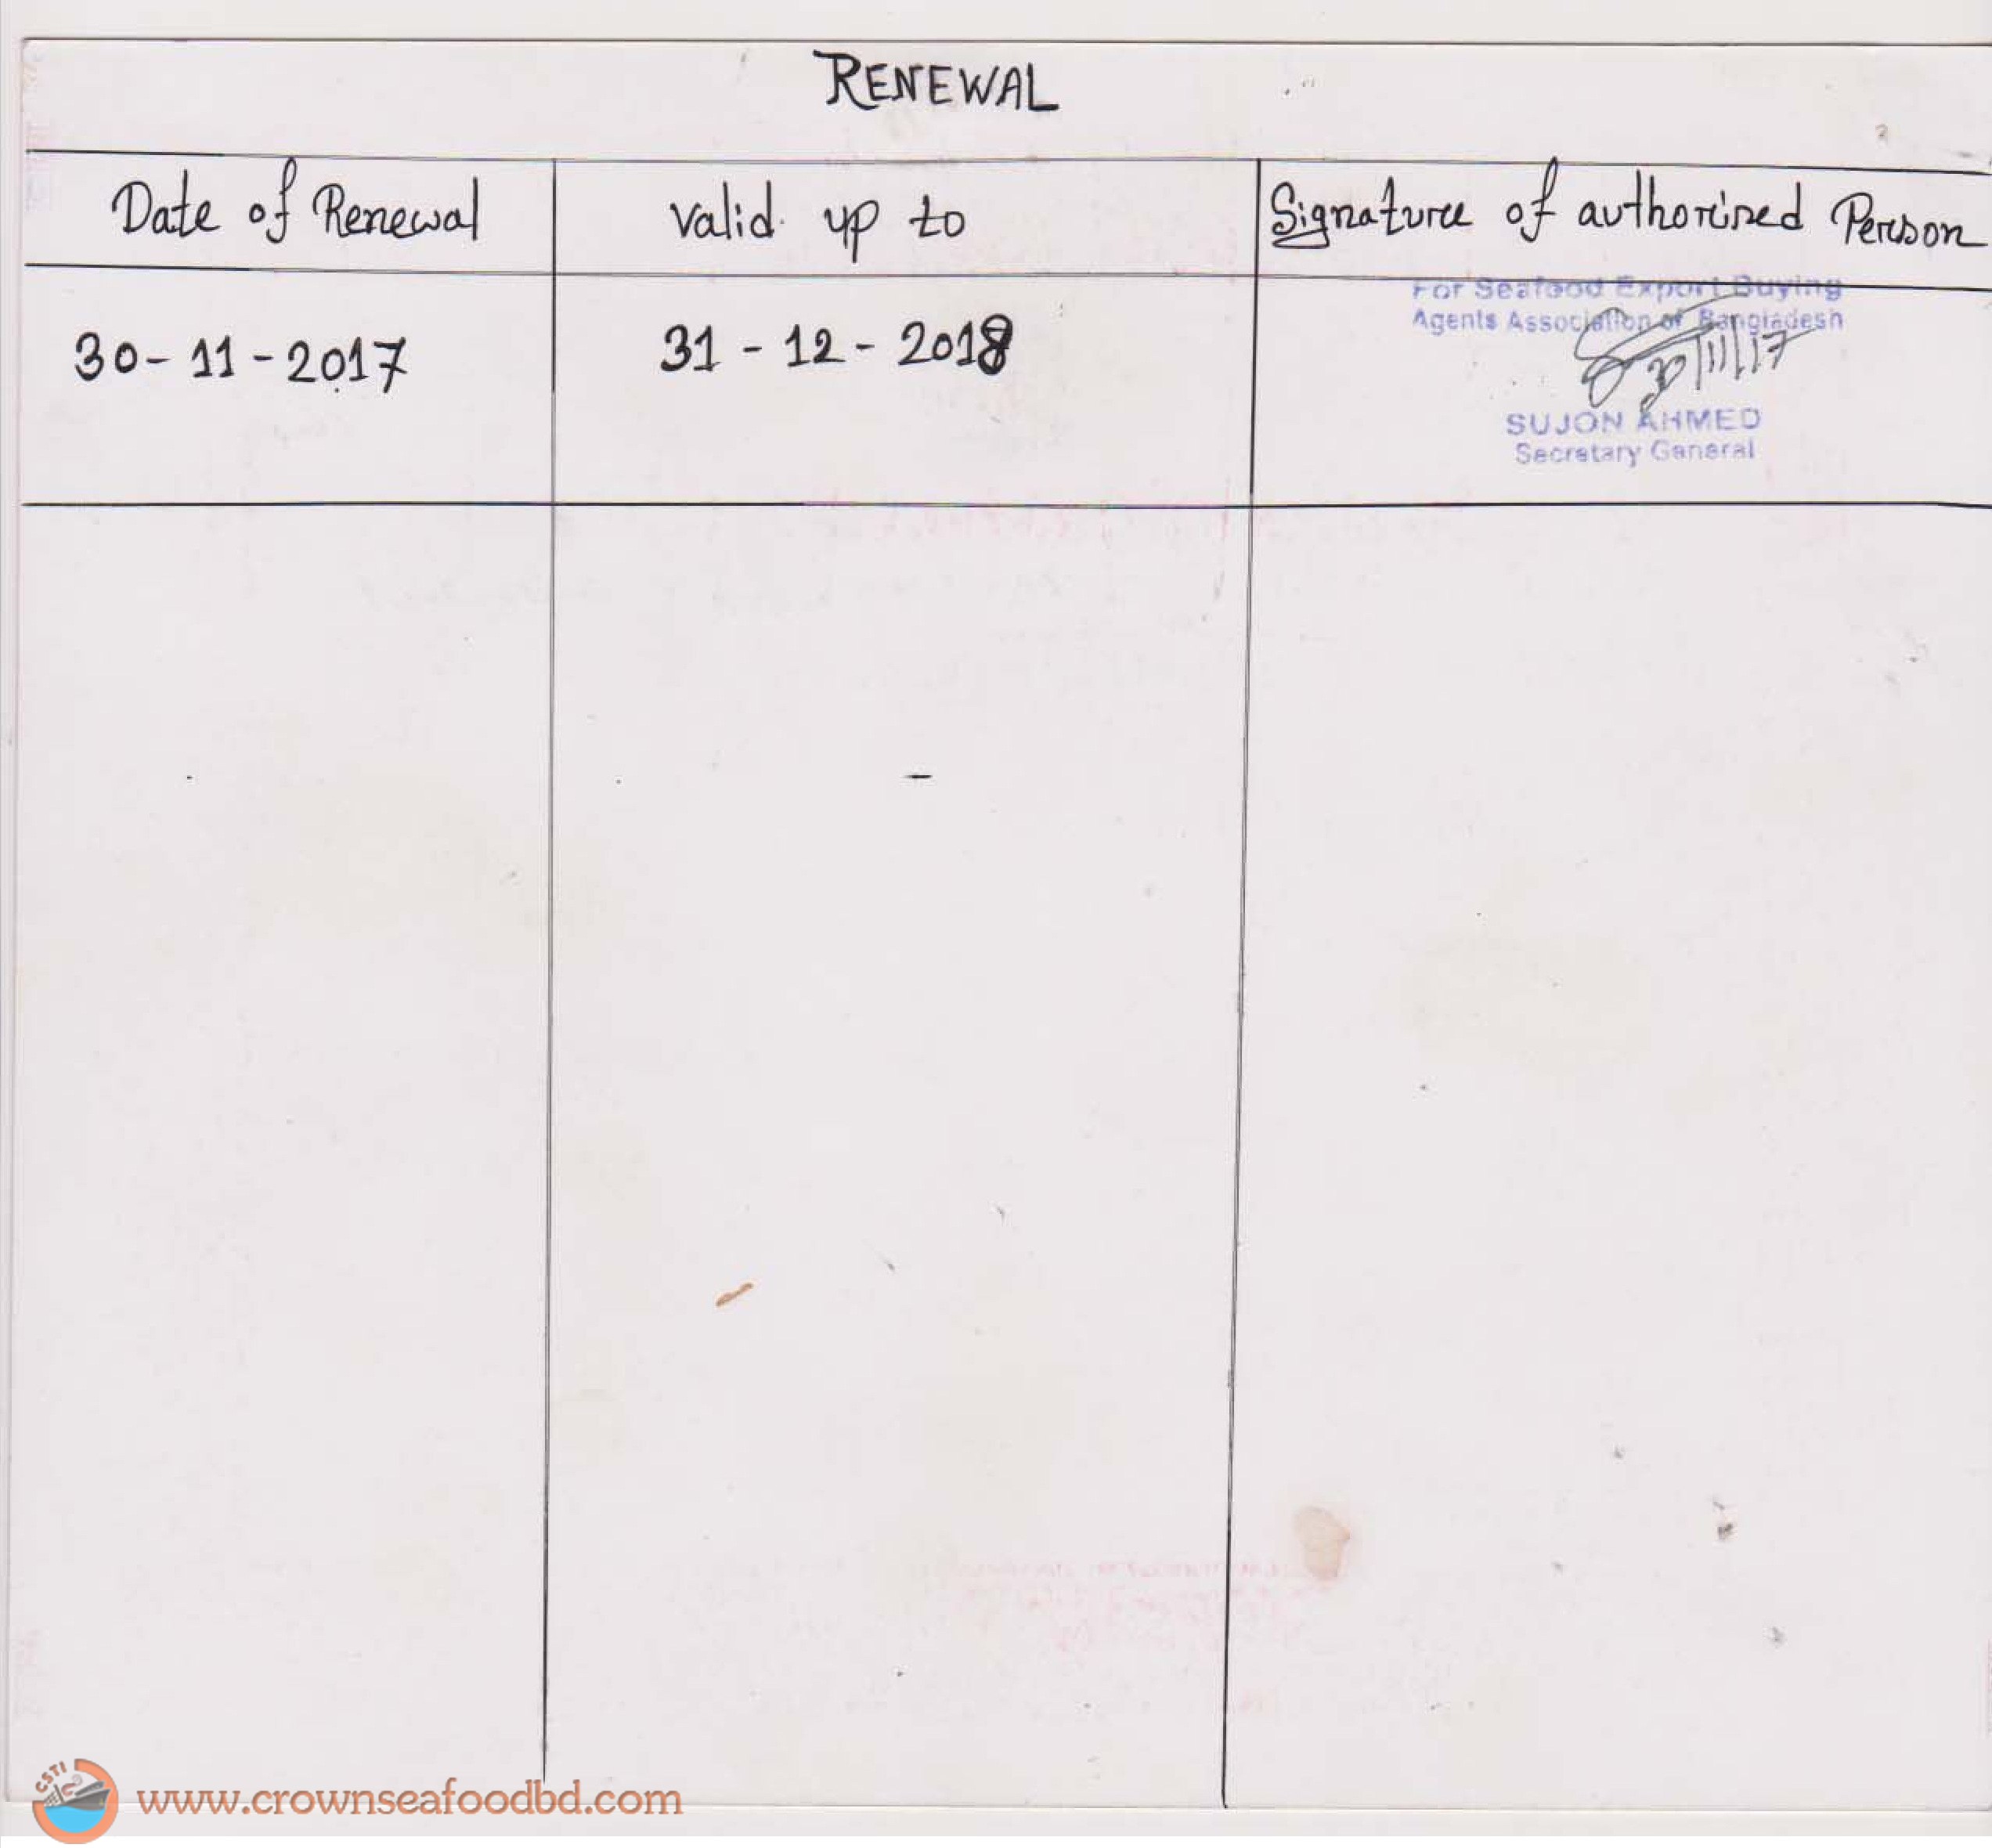 RENEWAL
Date of Renewal
Valid up to
Signature of authorised Person
30-11-2017
31-12-2018
For Seafood Export Buying
Agents Association of Bangladesh
30/11/17
SUJON AHMED
Secretary General
CSTI
www.crownseafoodbd.com